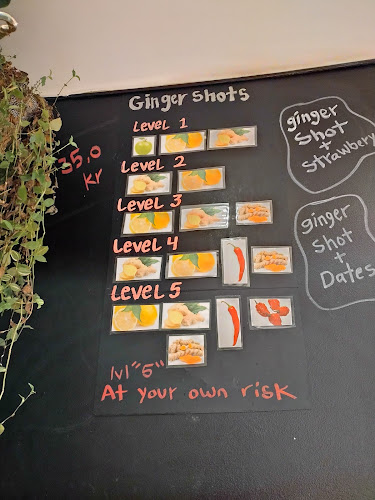 Ginger Shots
Level 1
35,0
kr
Level 2
Level 3
Level 4
Level 5
lvl "5"
At your own risk
ginger
shot
+
strawbery
ginger
shot
+
Dates